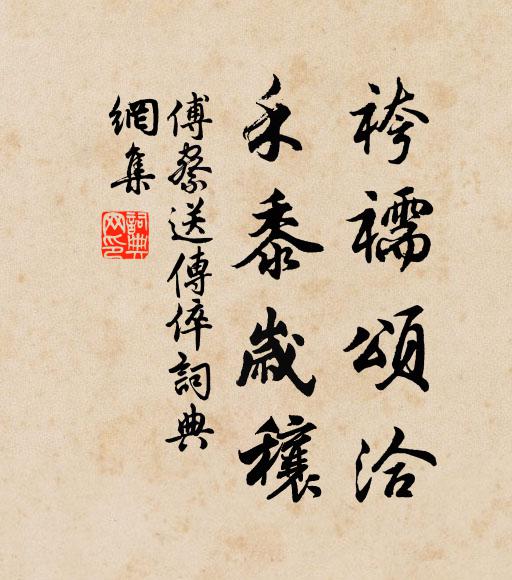 袴襦頌洽
禾黍歲穰
傅察送傅倅詞典
網集
詞典
网印